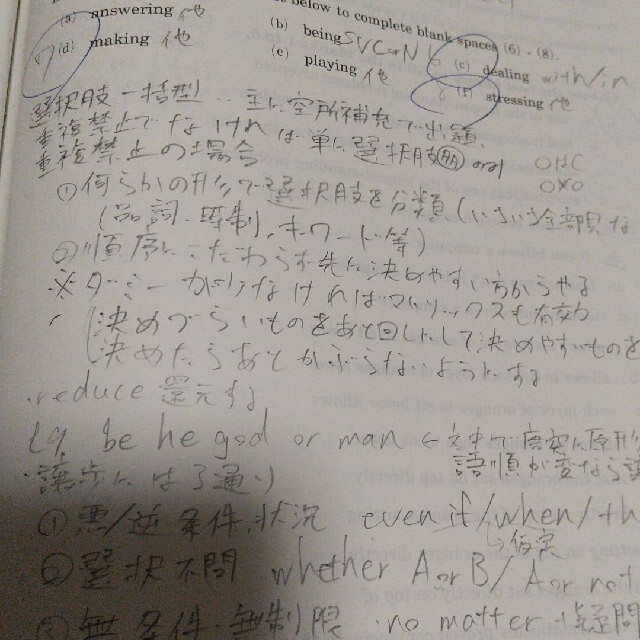 below to complete blank spaces (6) - (8).
(a) answering 他
(b) being SVC or N
(c) dealing with/in
7 (d) making 他
(e) playing 他
stressing 他
選択肢一括型 … 主に空所補充で出題、
重複禁止でなければ単に選択肢
重複禁止の場合
①何らかの形で選択肢を分類(いきなり全部見な
(品詞・時制、キーワード等)
②順序にこだわらず先に決めやすい方からやる
※ダミーがなければマトリックスも有効
決めづらいものをあと回しにして決めやすいものを
決めたらあとかぶらないようにする
・reduce 還元する
be he god or man ← 文中で唐突に原形
・譲歩には3通り
①悪/逆条件、状況 even if/when/th
②選択不問 whether A or B / A or not
③無条件・無制限 no matter 疑問